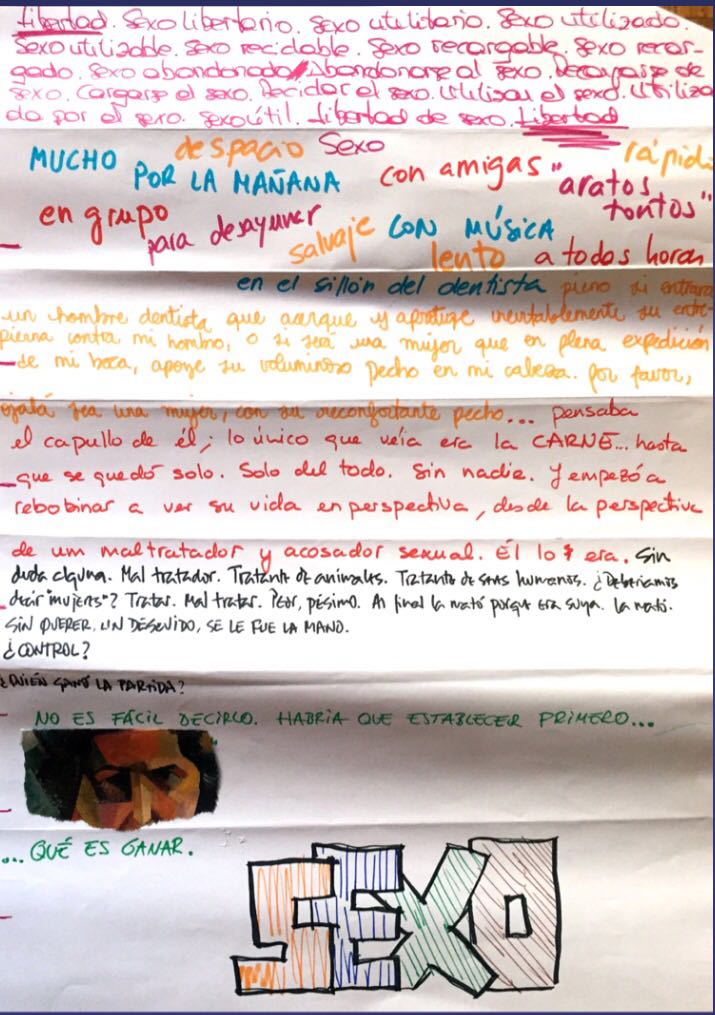 Libertad. Sexo libertario. Sexo utilitario. Sexo utilizado.
Sexo utilizable. Sexo reciclable. Sexo recargable. Sexo recar-
gado. Sexo abandonado. Abandonarse al sexo. de
sexo. Cargarse el sexo. Decidor el sexo. Utilizar el sexo. Utiliza
da por el sexo. Sexo útil. Libertad de sexo. Libertad
MUCHO despacio Sexo con amigas rápido
POR LA MAÑANA "aratos tontos"
en grupo para desayunar salvaje CON MÚSICA
lento a todas horas
en el sillón del dentista pienso si entrara
un hombre dentista que acerque y apretuje inevitablemente su entre-
pierna contra mi hombro, o si será una mujer que en plena expedición
de mi boca, apoye su voluminoso pecho en mi cabeza. Por favor,
ojalá sea una mujer, con su reconfortante pecho... pensaba
el capullo de él; lo único que veía era la CARNE... hasta
que se quedó solo. Solo del todo. Sin nadie. Y empezó a
rebobinar a ver su vida en perspectiva, desde la perspectiva
de um maltratador y acosador sexual. Él lo era. Sin
duda alguna. Mal tratador. Tratante de animales. Tratante de seres humanos. ¿Deberíamos
decir "mujeres"? Tratar. Mal tratar. Peor, pésimo. Al final la mató porque era suya. La mató.
SIN QUERER, UN DESCUIDO, SE LE FUE LA MANO.
¿CONTROL?
¿QUIÉN GANÓ LA PARTIDA?
NO ES FÁCIL DECIRLO. HABRÍA QUE ESTABLECER PRIMERO...
... QUÉ ES GANAR.
SEXO